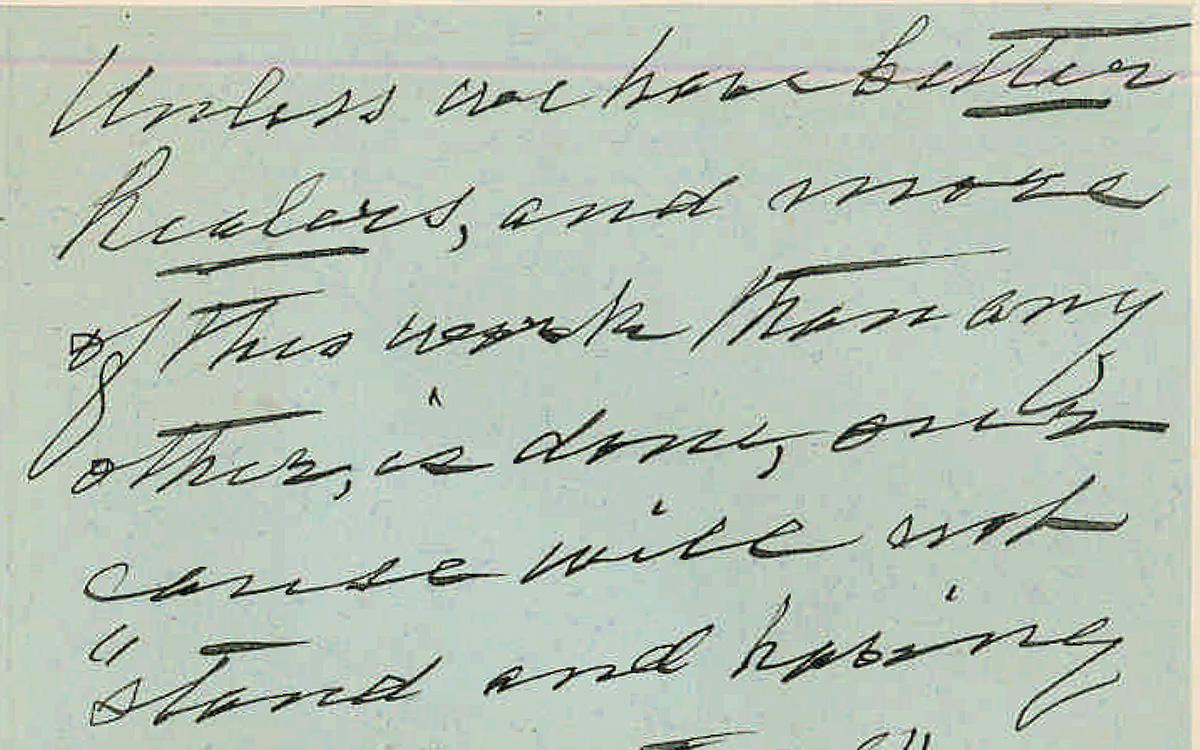 Unless we have better
healers, and more
of this work than any
other, is done, our
cause will not
"stand and having